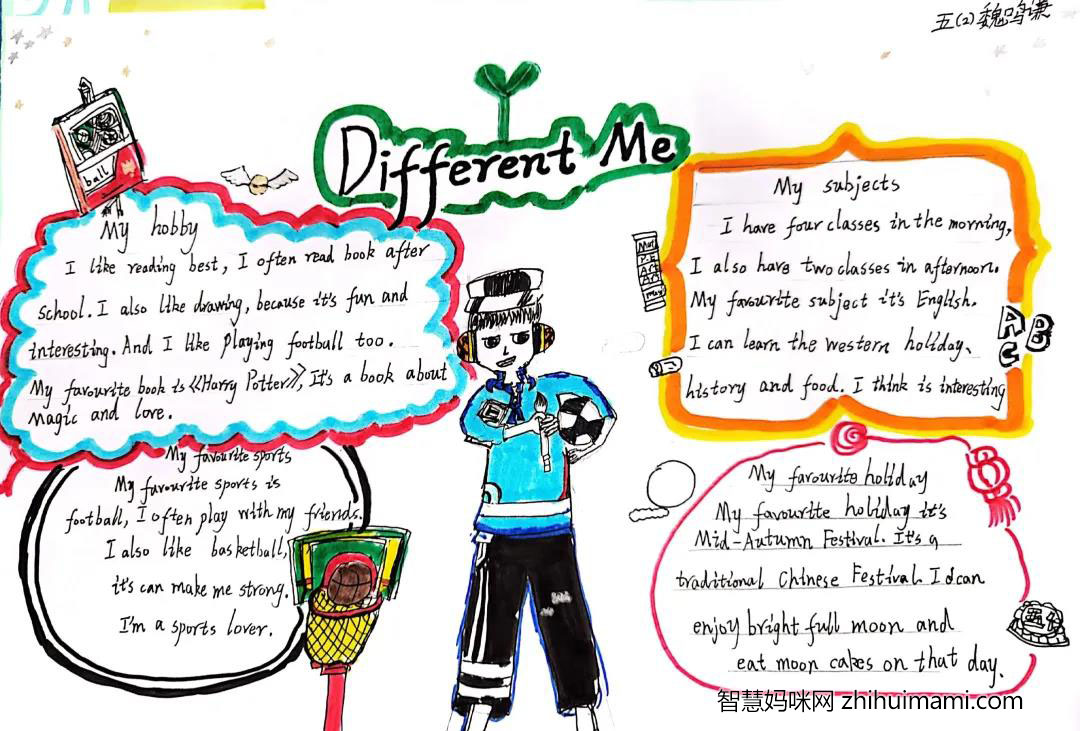 五(2)魏鸣谦
Different Me
ball
My hobby
I like reading best, I often read book after
school. I also like drawing, because it's fun and
interesting. And I like playing football too.
My favourite book is《Harry Potter》, It's a book about
magic and love.
My favourite sports
My favourite sports is
football, I often play with my friends.
I also like basketball,
it's can make me strong.
I'm a sports lover.
My subjects
I have four classes in the morning,
I also have two classes in afternoon.
My favourite subject it's English.
I can learn the western holiday、
history and food. I think is interesting
A B C
My favourite holiday
My favourite holiday it's
Mid-Autumn Festival. It's a
traditional Chinese Festival. I can
enjoy bright full moon and
eat moon cakes on that day.
智慧妈咪网 zhihuimami.com